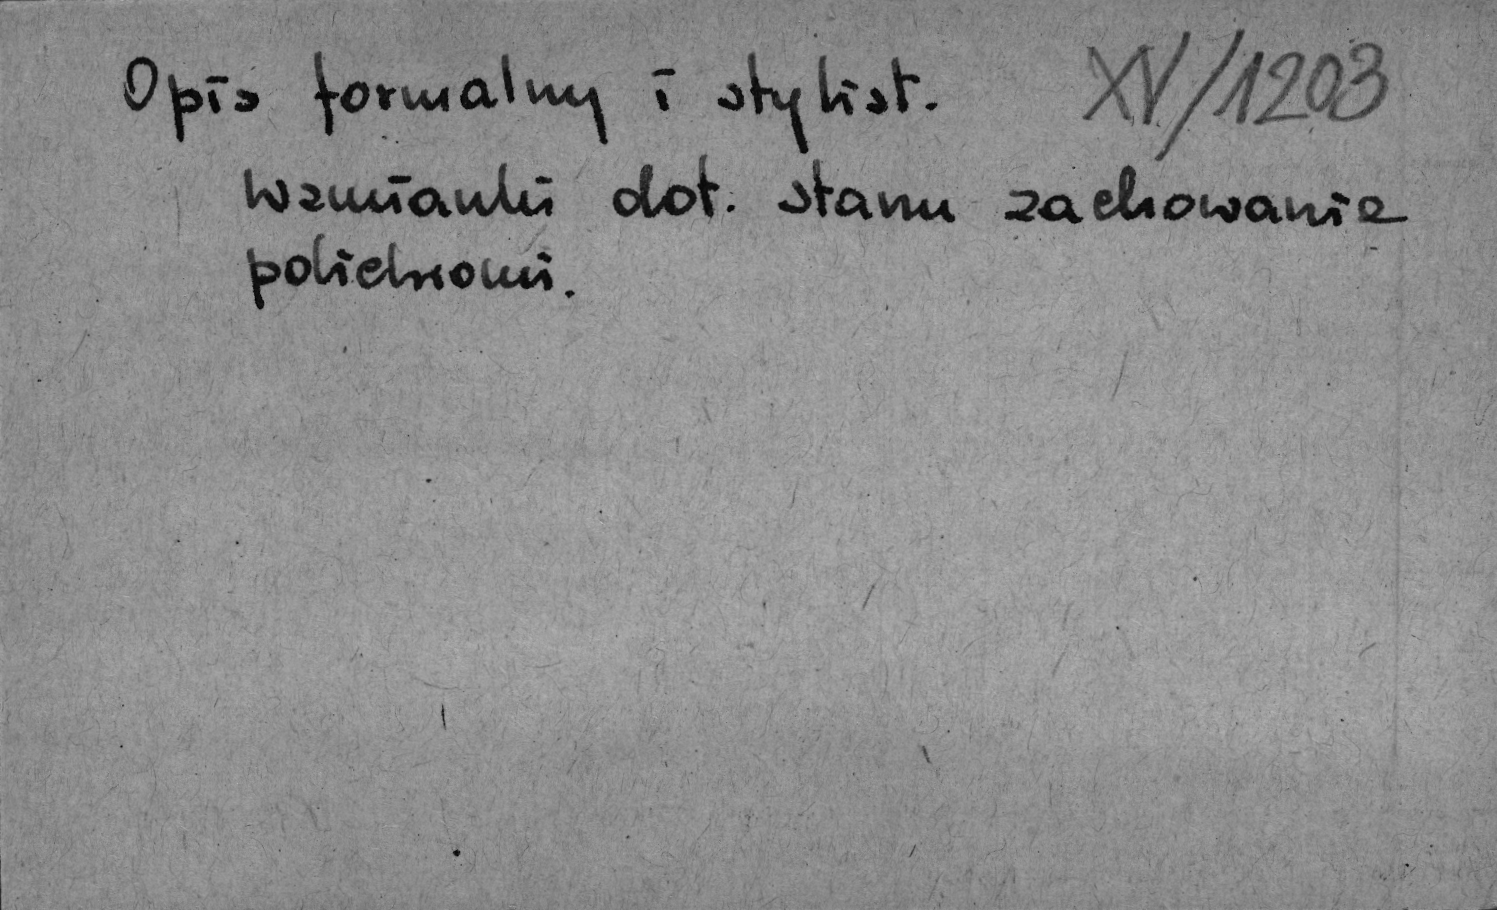 Opis formalny i stylist. XV/1203
wzmianki dot. stanu zachowania
polichromi.